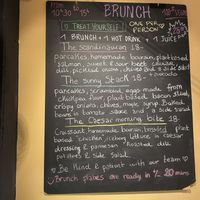 From 10h30 to 15h
BRUNCH
TREAT YOURSELF
ONE PER PERSON
1 BRUNCH + 1 HOT DRINK + 1 JUICE
The Scandinavian 18.-
pancakes, homemade boursin, plant-based
salmon, sweet & sour beet,
dill, pickled onion, chives and a side salad
The Sunny Stack 18.-
pancakes, scrambled eggs made from
chickpea flour, plant-based bacon slices,
crispy onions, chives, maple syrup, baked
beans in tomato sauce and a side salad
The Caesar morning bite 18.-
Croissant, homemade boursin, breaded plant
based "chicken", iceberg lettuce, in caesar
dressing & parmesan. Roasted dill
potatoes & side salad.
Be Kind & patient with our team
Brunch plates are ready in 20 mins